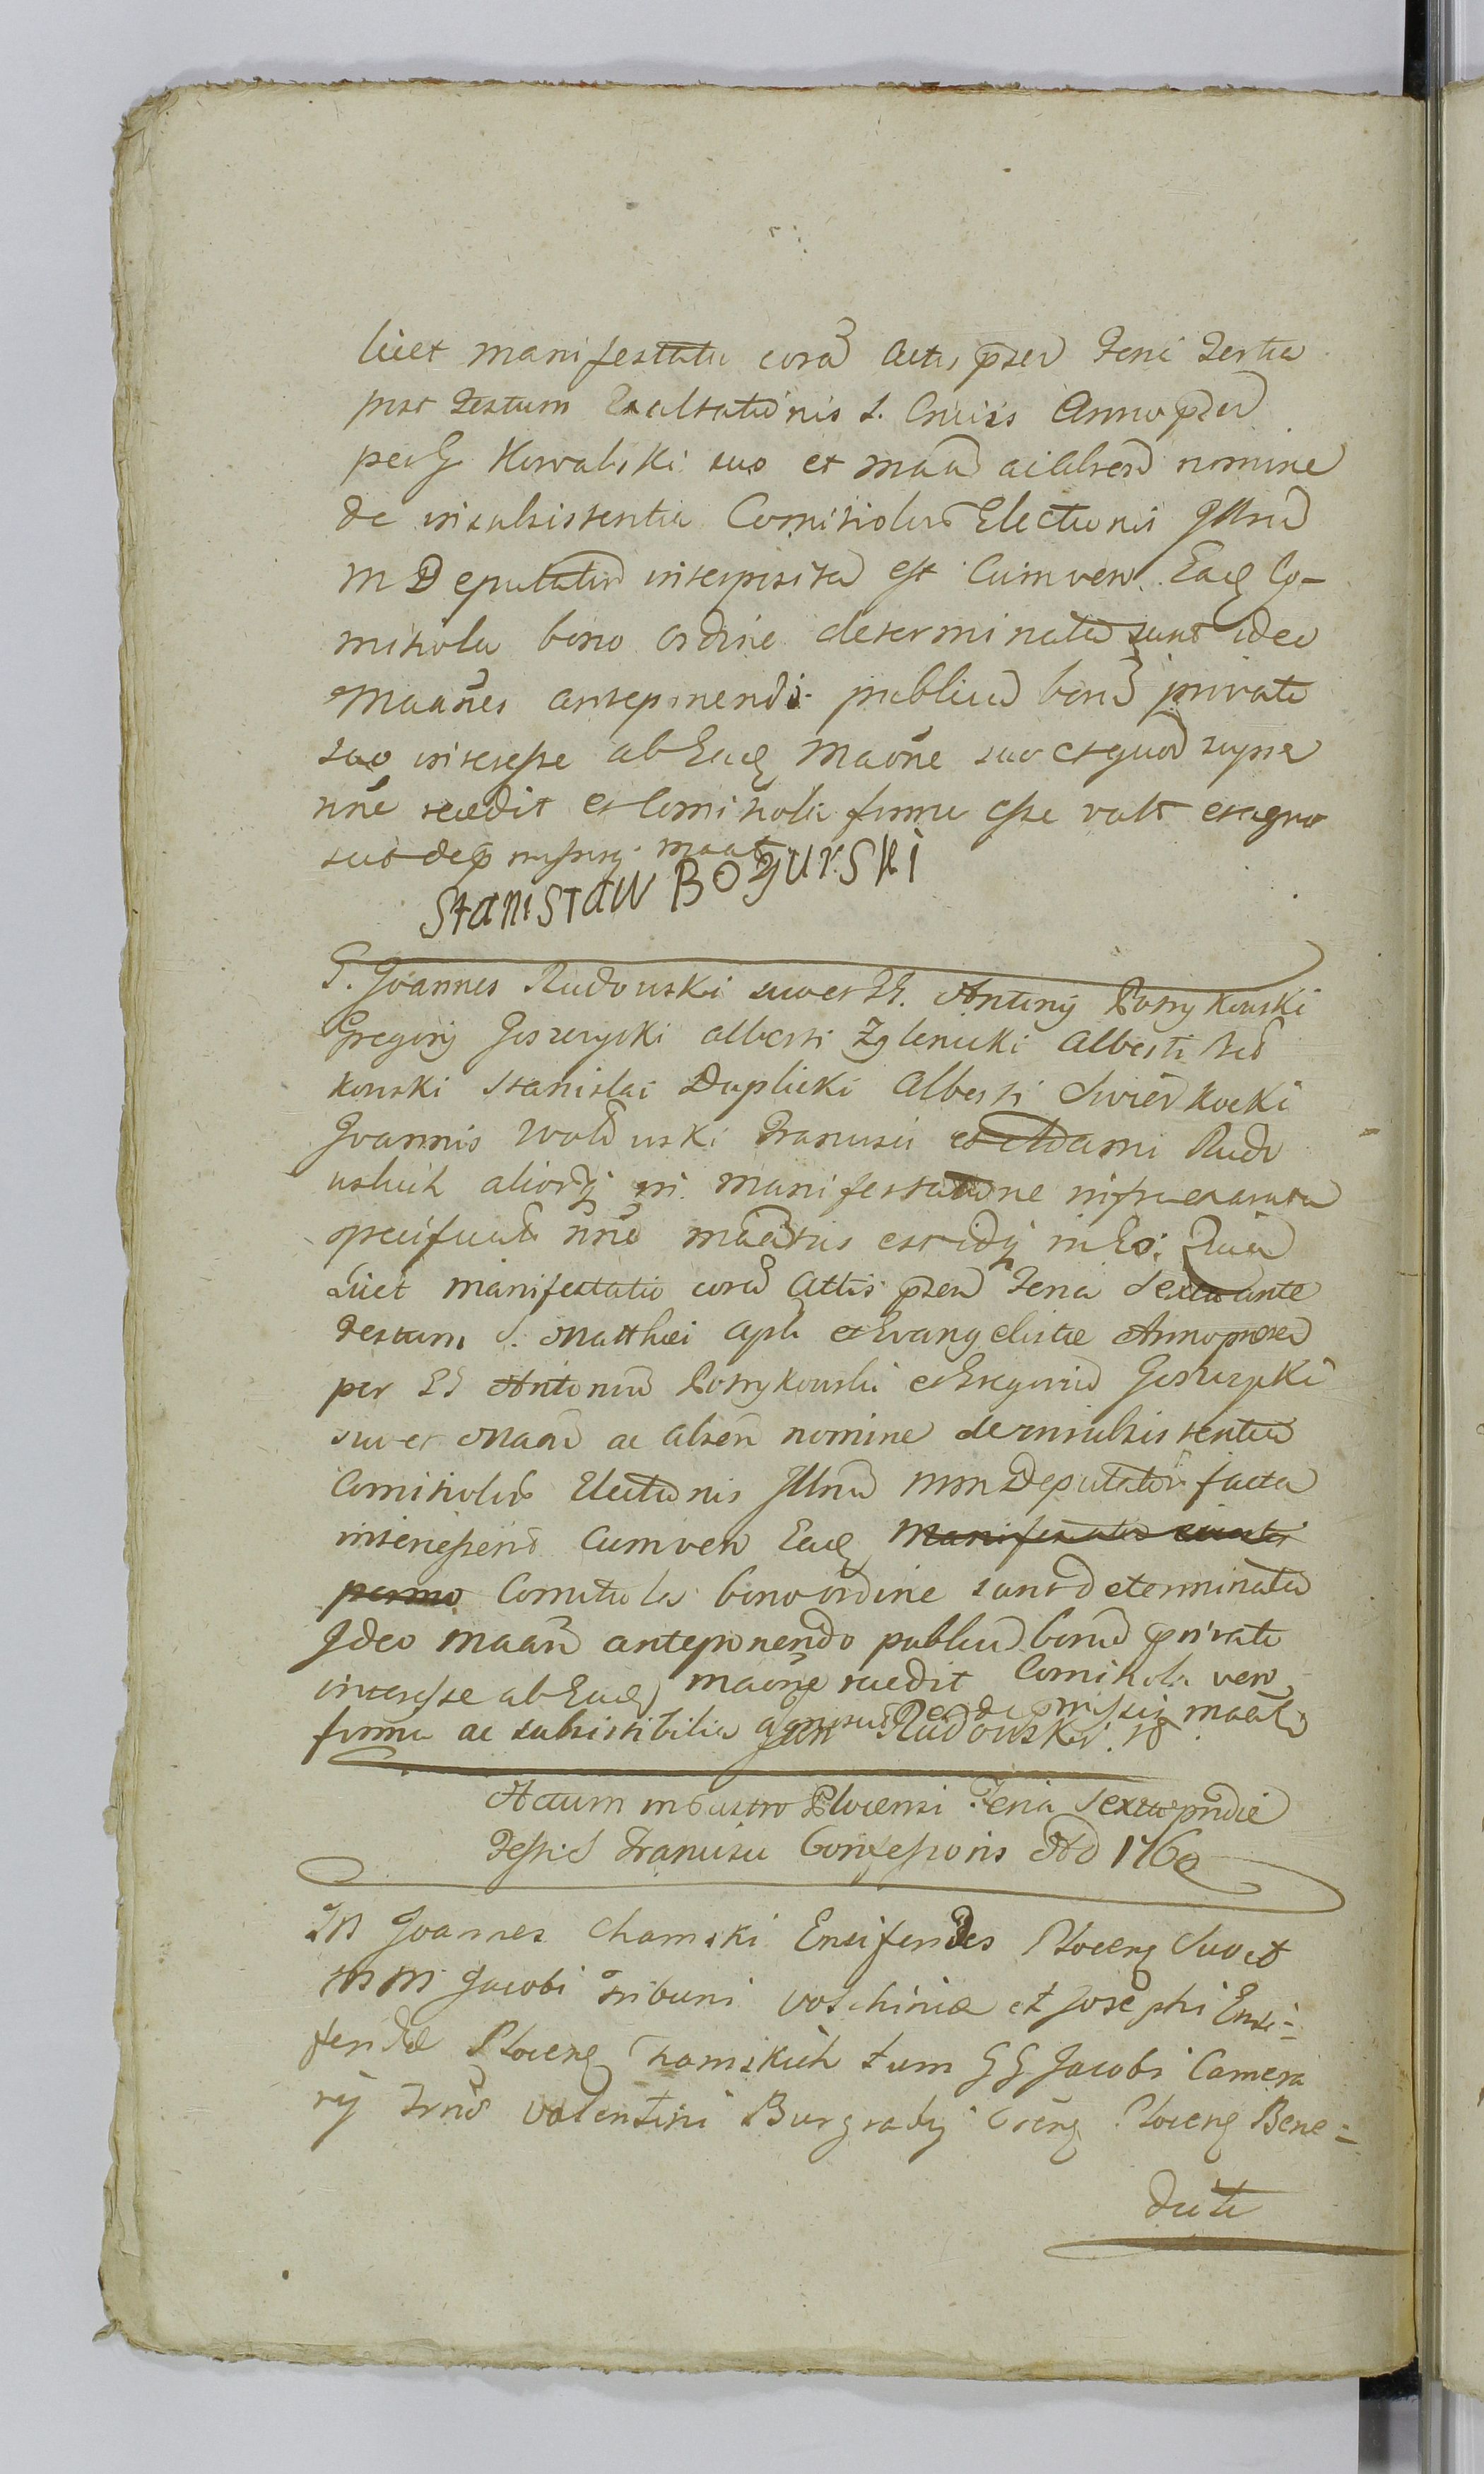 licet manifestatio corā Actis psen Feria Tertia
post Festum Exaltationis S. Crucis Anno psen
per G Kowalski suo et maan ac absen nomine
de insubsistentia Comitiolor Electionis Illrum
M Deputator interposita est Cum vero Eadē Co-
mitiola bono ordine determinata sunt ideo
Maanes anteponendo publicū bonū privato
suo interesse ab Eadē Maone suo et quo supra
nne recedit et Comitiola firma esse vult et agno
scit de pmissis maat
Stanisław BOGURSKI
G. Joannes Rudowski suo et GG. Antonij Kossykowski
Gregorij Goszczycki Alberti Zglenicki Alberti
kowski Stanislai Duplicki Alberti Swierkocki
Joannis Francisci et Adami Rudo
wskich aliorq in manifestatione infra exarata
specificat nne maatus est idq in Eo: Quia
Licet manifestatio corā Actis psen Feria Sexta ante
Festum S. Matthæi Apli et Evangelistæ Anno psen
per GG Antoniū Kossykowski et Gregoriū Goszczycki
suo et Maan ac absen nomine de insubsistentia
Comitiolor Electionis Illrum MM Deputator facta
Cum vero Eadē Manifestatio
Comitiola bono ordine sunt determinata
Ideo maan anteponendo publicū bonū privato
interesse ab Eadē maone recedit Comitiola vero
firma ac subsistibilia agnoscit et de pmissis maat
Jan Rudowski
Actum in Castro Plocensi Feria Sexta pridie
Festi S Francisci Confessoris AD 1760
M Joannes Chamski Ensiferides Plocen Suo et
MM Jacobi Tribuni et Josephi Ensi-
feridæ Plocen Chamskich tum GG Jacobi Camera
rij Valentini Burgrabij Plocen Bene-
dicti